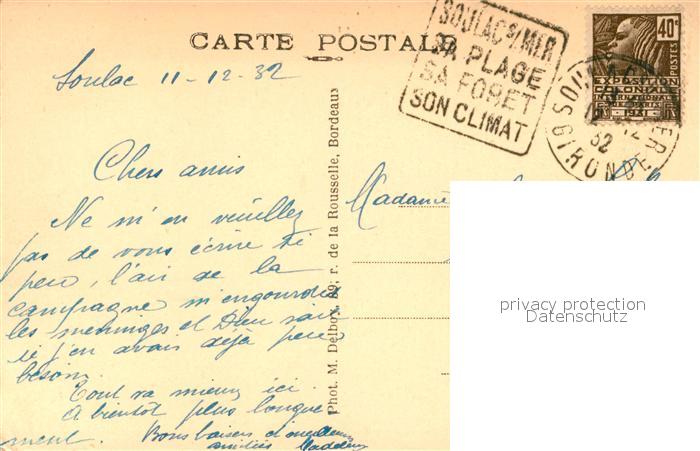 CARTE POSTALE
SOULAC S/MER
SA PLAGE
SA FORET
SON CLIMAT
40c
POSTES
EXPOSITION
COLONIALE
INTERNATIONALE
PARIS 1931
32
GIRONDE
Soulac 11-12-32
Chers amis
Ne m'en veuillez
pas de vous écrire si
peu, l'air de la
campagne m'engourdit
les méninges et Dieu sait
si j'en avais déjà peu
besoin.
Tout va mieux ici.
A bientôt plus longue
ment. Bons baisers et
amitiés
Phot. M. Delboy, 89, r. de la Rousselle, Bordeaux
Madame
privacy protection
Datenschutz